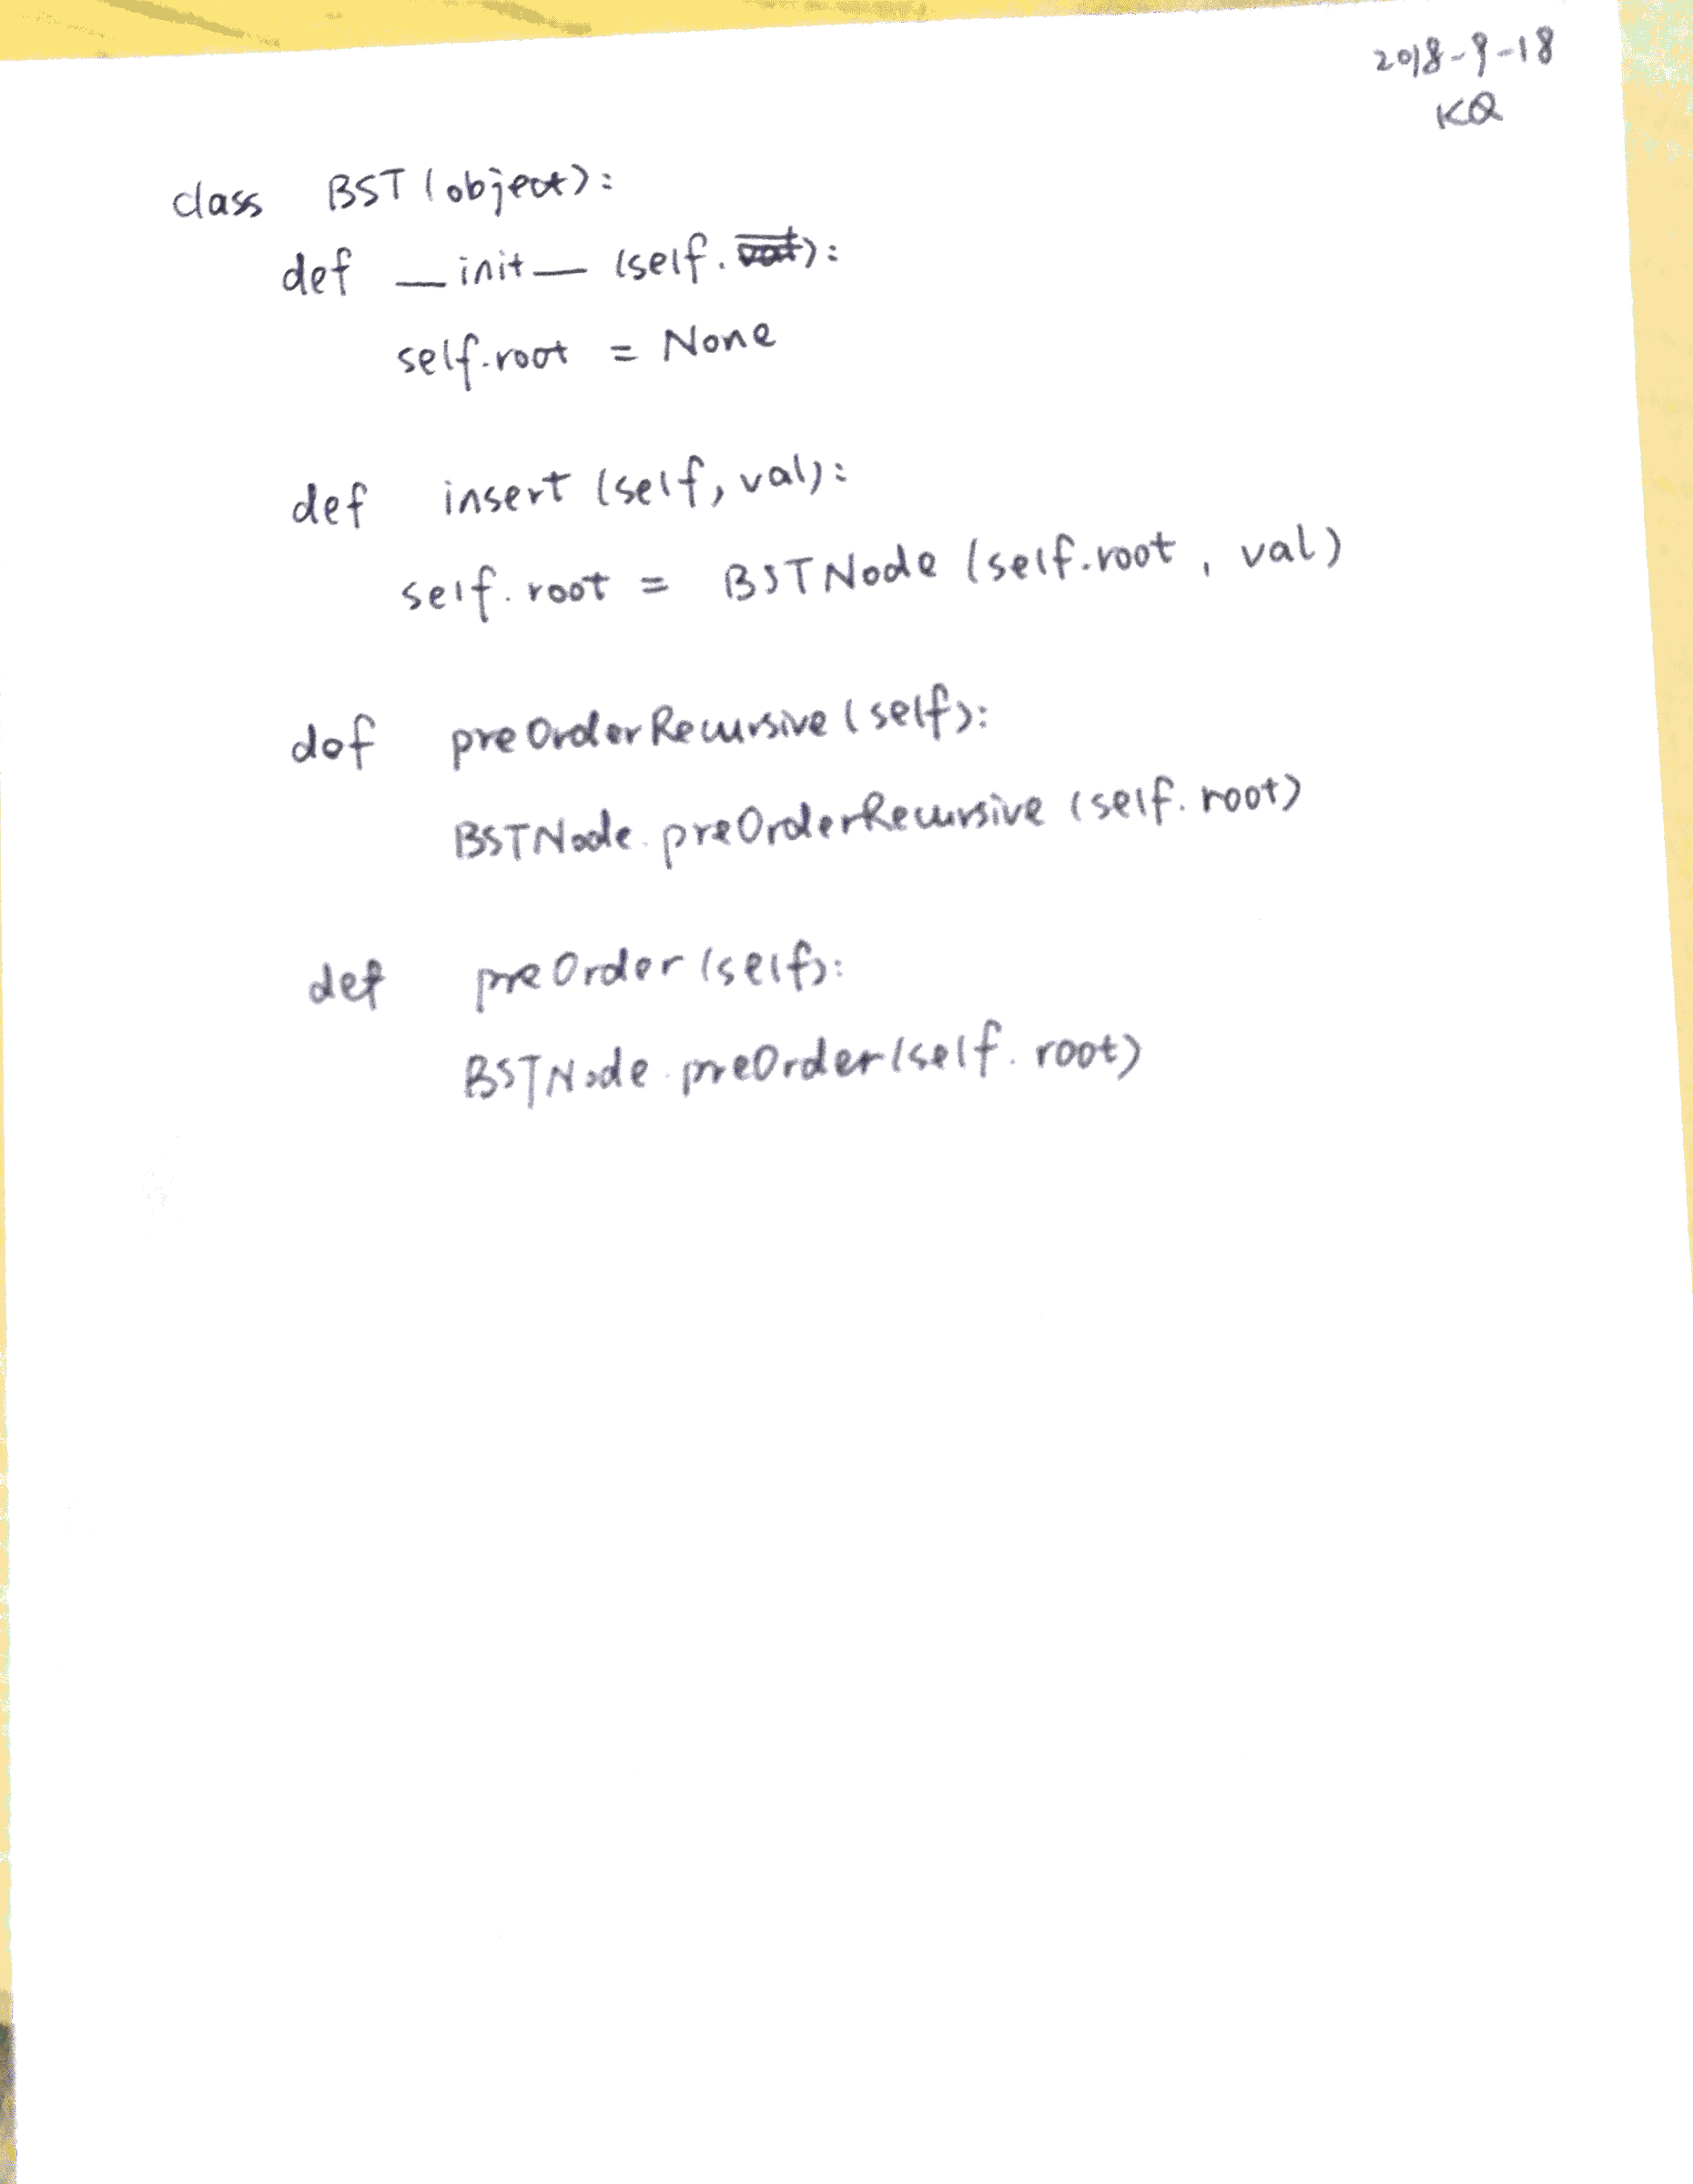 2018-9-18
KQ
class BST (object):
def __init__ (self.root):
self.root = None
def insert (self, val):
self.root = BSTNode (self.root, val)
def preOrderRecursive (self):
BSTNode.preOrderRecursive (self.root)
def preOrder (self):
BSTNode.preOrder (self.root)